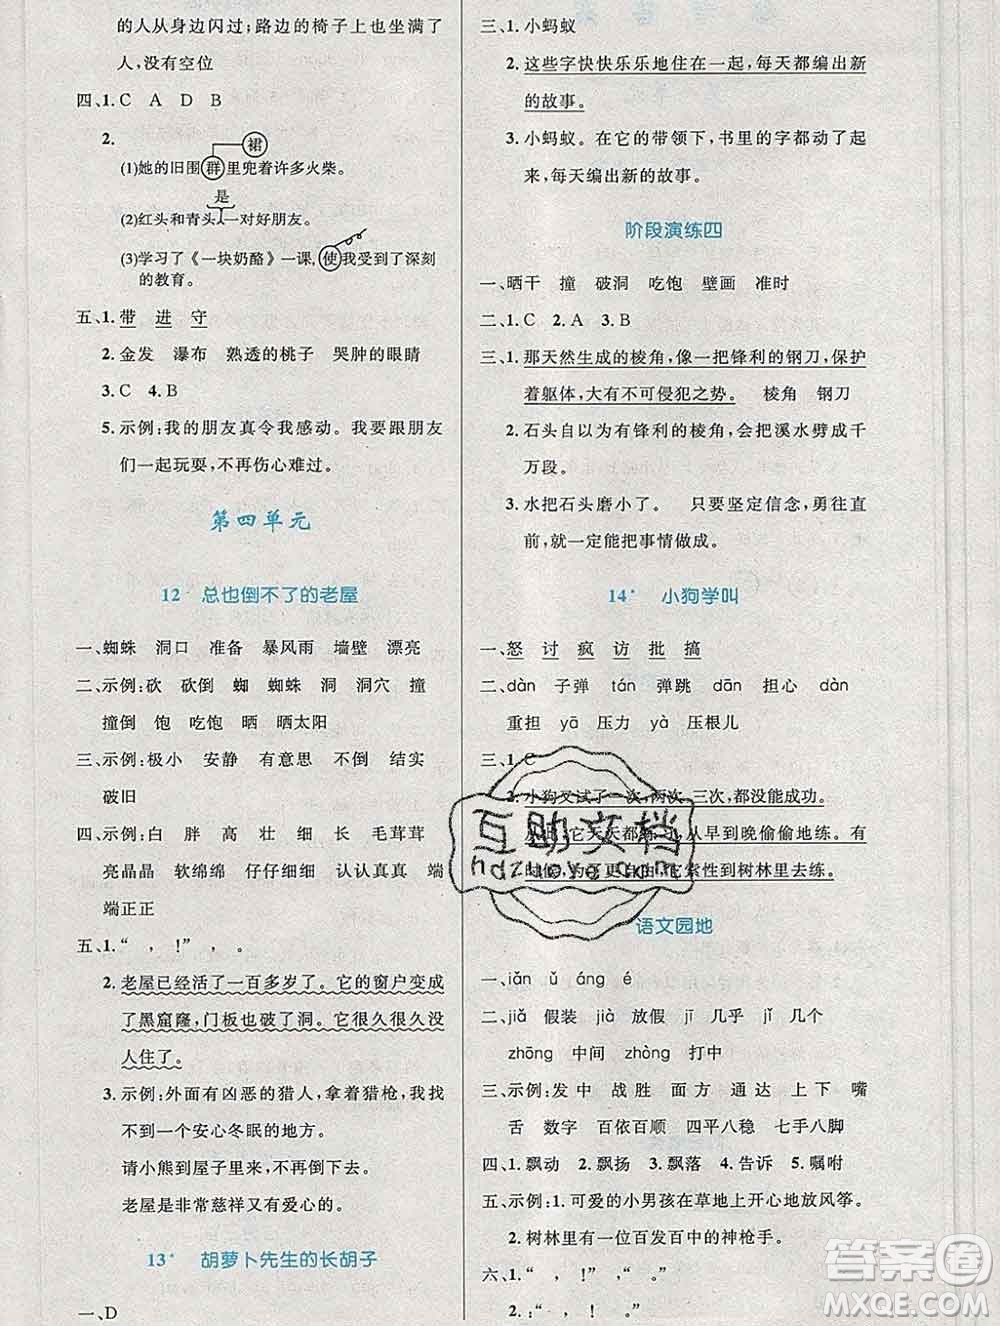 的人从身边闪过;路边的椅子上也坐满了
人,没有空位
四、1. C A D B
2.
裙
(1)她的旧围群里兜着许多火柴。
是
(2)红头和青头一对好朋友。
(3)学习了《一块奶酪》一课,使我受到了深刻
的教育。
五、1. 带 进 守
2. 金发 瀑布 熟透的桃子 哭肿的眼睛
3. C 4. B
5. 示例:我的朋友真令我感动。我要跟朋友
们一起玩耍,不再伤心难过。
第四单元
12 总也倒不了的老屋
一、蜘蛛 洞口 准备 暴风雨 墙壁 漂亮
二、示例:砍 砍倒 蜘 蜘蛛 洞 洞穴 撞
撞倒 饱 吃饱 晒 晒太阳
三、示例:极小 安静 有意思 不倒 结实
破旧
四、示例:白 胖 高 壮 细 长 毛茸茸
亮晶晶 软绵绵 仔仔细细 认认真真 端
端正正
五、1. “ , !”, 。
2. 老屋已经活了一百多岁了。它的窗户变成
了黑窟窿,门板也破了洞。它很久很久没
人住了。
3. 示例:外面有凶恶的猎人,拿着猎枪,我找
不到一个安心冬眠的地方。
请小熊到屋子里来,不再倒下去。
老屋是非常慈祥又有爱心的。
13* 胡萝卜先生的长胡子
一、D
三、1. 小蚂蚁
2. 这些字快快乐乐地住在一起,每天都编出新
的故事。
3. 小蚂蚁。在它的带领下,书里的字都动了起
来,每天编出新的故事。
阶段演练四
一、晒干 撞 破洞 吃饱 壁画 准时
二、1. C 2. A 3. B
三、1. 那天然生成的棱角,像一把锋利的钢刀,保护
着躯体,大有不可侵犯之势。 棱角 钢刀
2. 石头自以为有锋利的棱角,会把溪水劈成千
万段。
3. 水把石头磨小了。 只要坚定信念,勇往直
前,就一定能把事情做成。
14* 小狗学叫
一、怒 讨 疯 访 批 搞
二、dàn 子弹 tán 弹跳 dān 担心 dàn
重担 yā 压力 yà 压根儿
三、1. C
2. 小狗又试了一次,两次,三次,都没能成功。
它天天都练,从早到晚偷偷地练。有
时候,为了更自由,它索性到树林里去练。
互助文档
语文园地
一、jiǎn ǔ áng é
二、jiǎ 假装 jià 放假 jī 几乎 jǐ 几个
zhōng 中间 zhòng 打中
三、示例:发 中 战 胜 面 方 通 达 上 下 嘴
舌 数字 百依百顺 四平八稳 七手八脚
四、1. 飘动 2. 飘扬 3. 飘落 4. 告诉 5. 嘱咐
五、示例:1. 可爱的小男孩在草地上开心地放风筝。
2. 树林里有一位百发百中的神枪手。
六、1. “ , !”
2. :“ , !”
答案圈
MXQE.COM